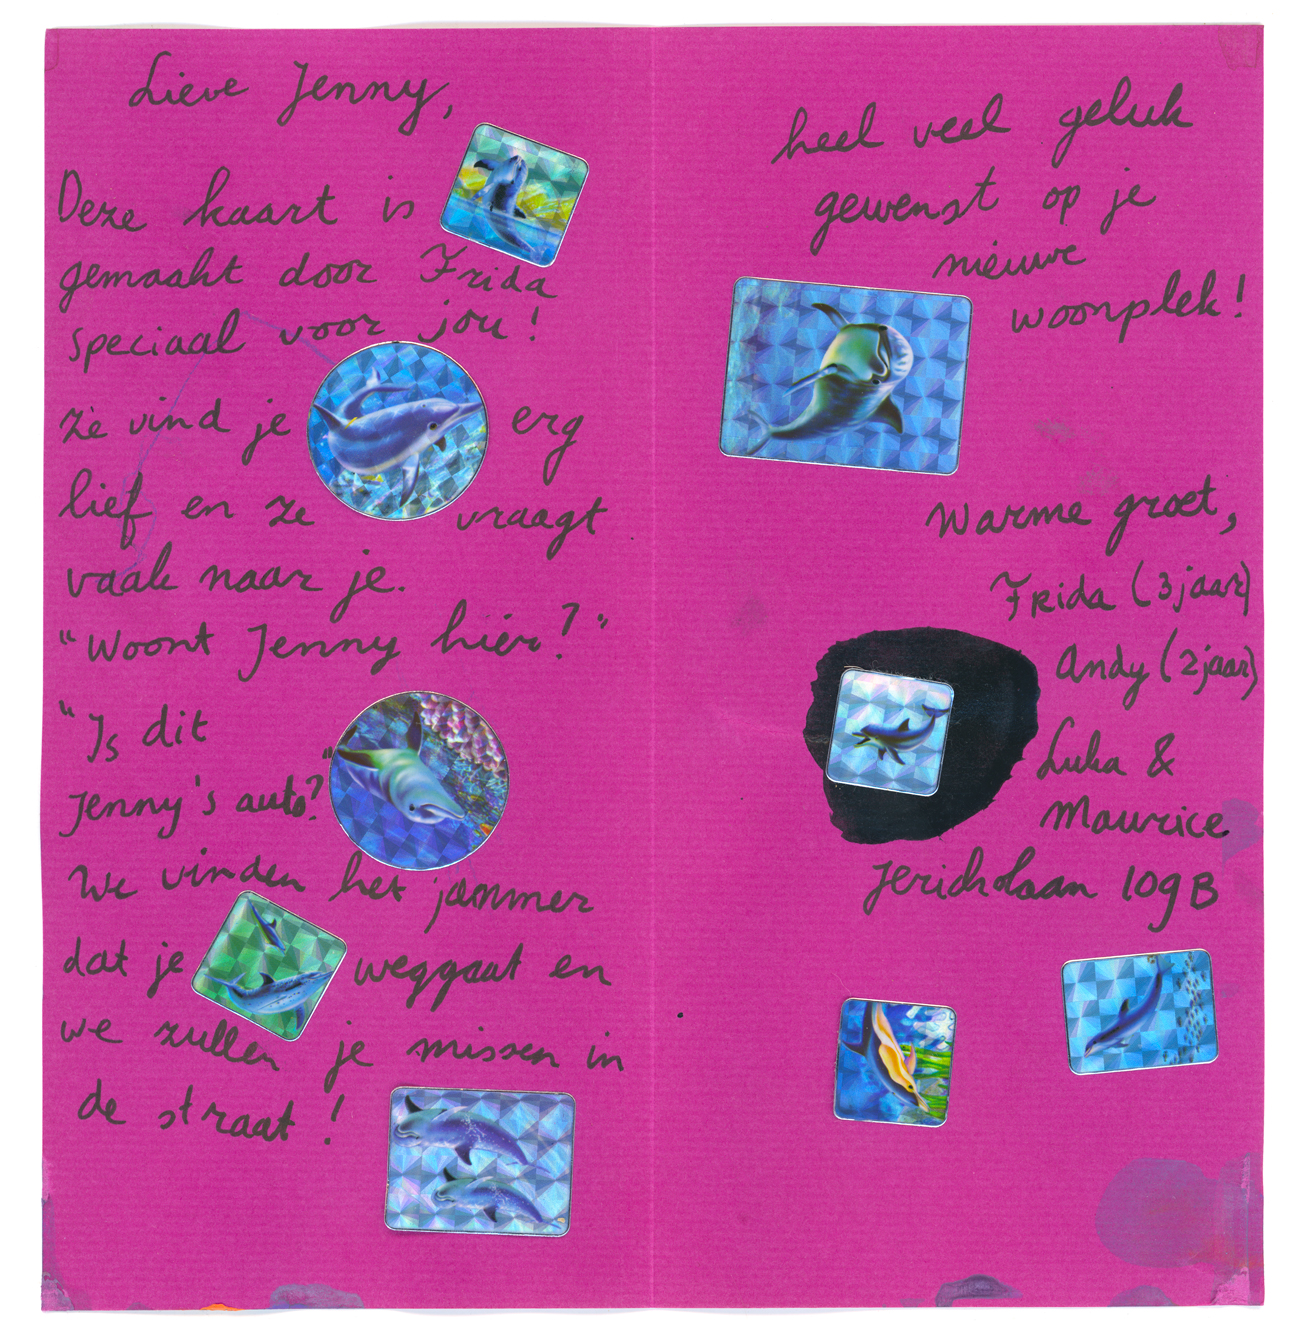 Lieve Jenny,
Deze kaart is
gemaakt door Frida
speciaal voor jou!
ze vind je erg
lief en ze vraagt
vaak naar je.
"Woont Jenny hier?"
"Is dit
Jenny's auto?"
We vinden het jammer
dat je weggaat en
we zullen je missen in
de straat!
heel veel geluk
gewenst op je
nieuwe
woonplek!
Warme groet,
Frida (3 jaar)
Andy (2 jaar)
Luka &
Maurice
Jericholaan 109B